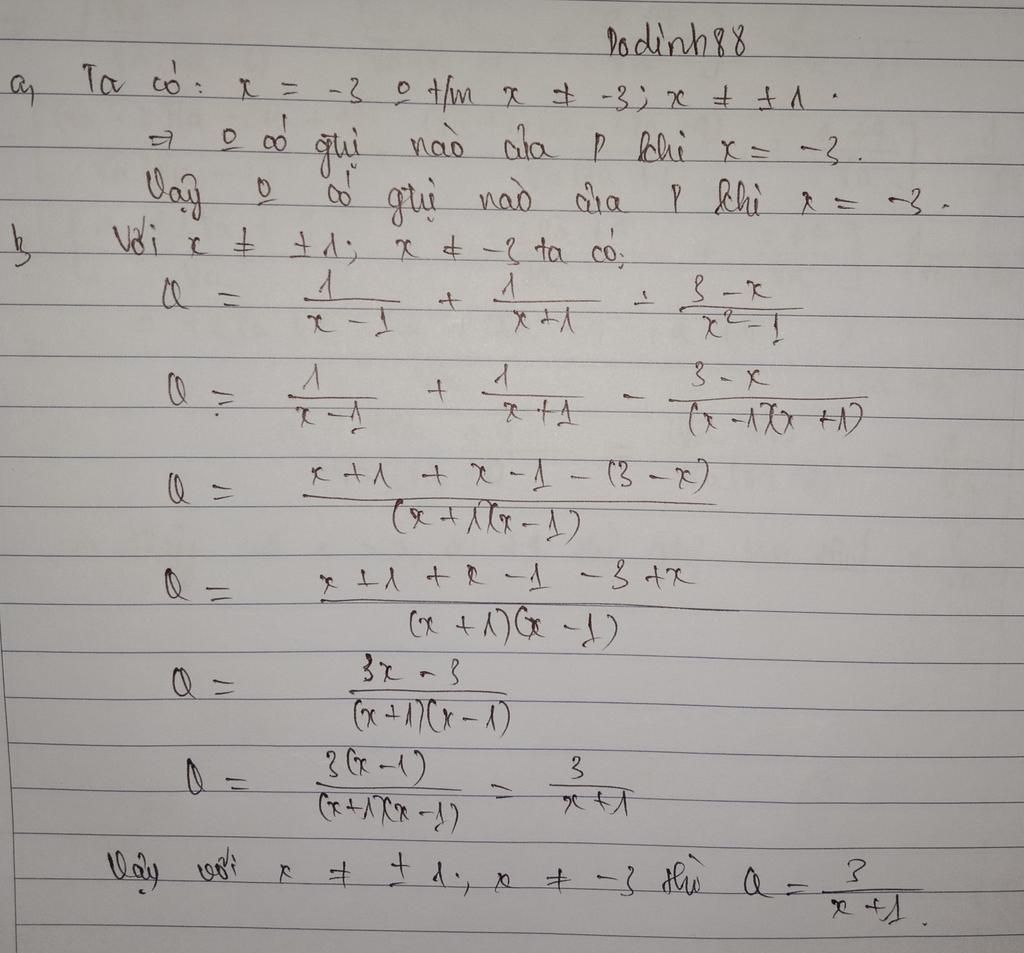 Dodinh88
a, Ta có: x = -3 o t/m x ≠ -3; x ≠ ±1.
⇒ o có gtrị nào của P khi x = -3.
Vậy o có gtrị nào của P khi x = -3.
b Với x ≠ ±1; x ≠ -3 ta có:
Q = 1/(x-1) + 1/(x+1) - (3-x)/(x²-1)
Q = 1/(x-1) + 1/(x+1) - (3-x)/((x-1)(x+1))
Q = (x+1+x-1-(3-x))/((x+1)(x-1))
Q = (x+1+x-1-3+x)/((x+1)(x-1))
Q = (3x-3)/((x+1)(x-1))
Q = 3(x-1)/((x+1)(x-1)) = 3/(x+1)
Vậy với x ≠ ±1; x ≠ -3 thì Q = 3/(x+1).